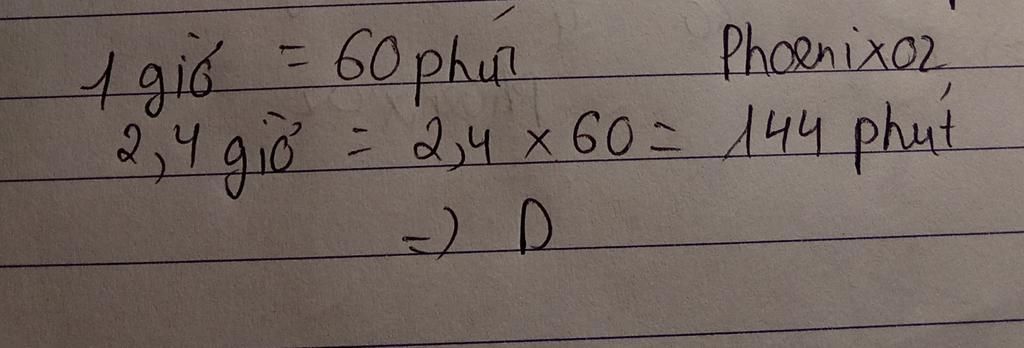 1 giờ = 60 phút Phoenix02
2,4 giờ = 2,4 x 60 = 144 phút
=> D